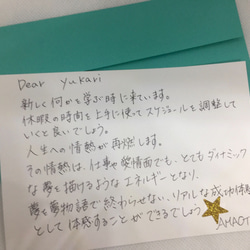 Dear Yukari
新しく何かを学ぶ時に来ています。
休暇の時間を上手に使ってスケジュールを調整して
いくと良いでしょう。
人生への情熱が再燃します。
その情熱は、仕事や愛情面でも、とてもダイナミック
な夢を描けるようなエネルギーとなり、
夢を夢物語で終わらせない、リアルな成功体験
として体感することができるでしょう
AMAOT